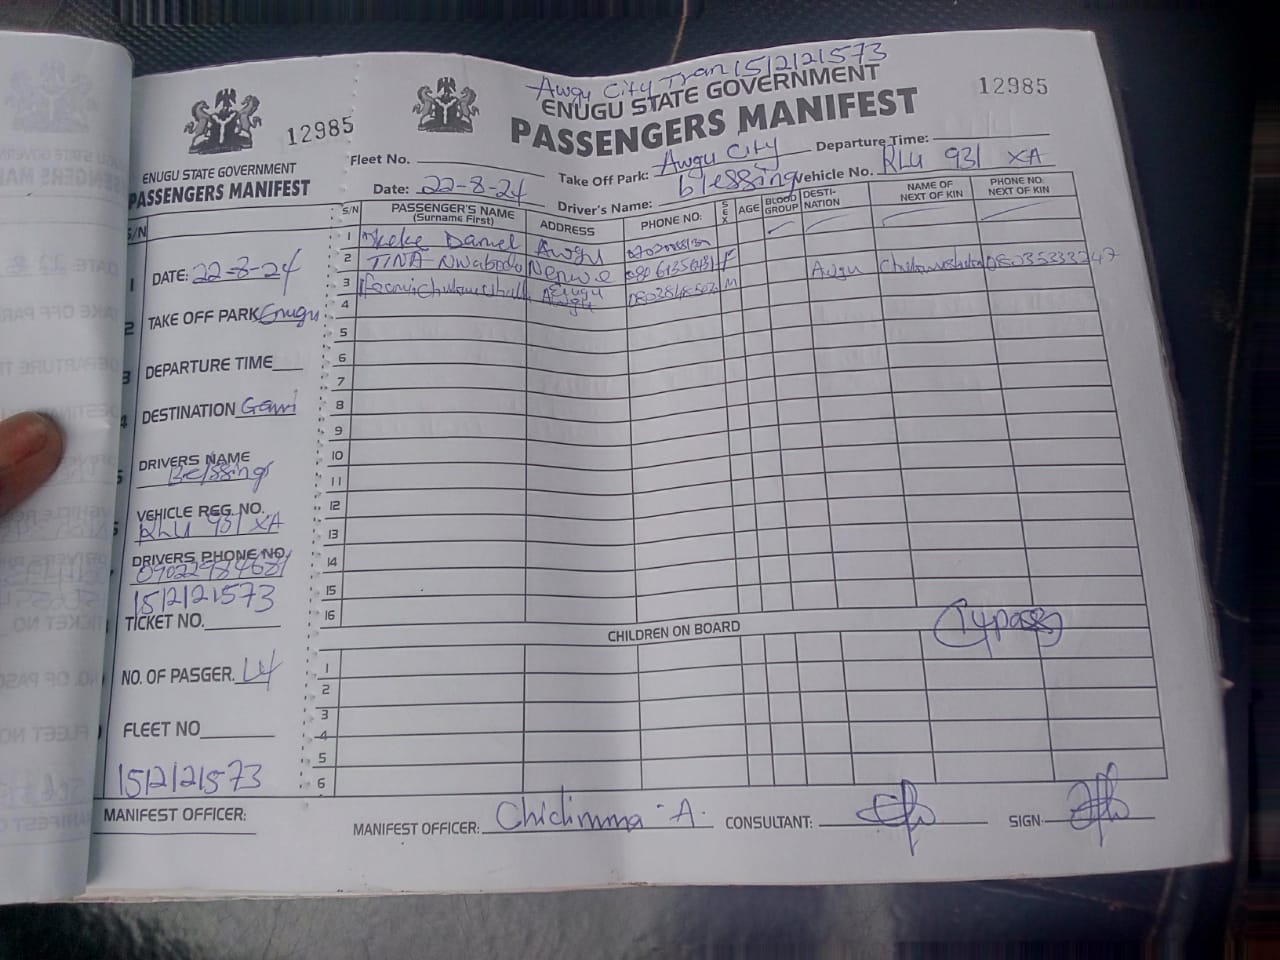 12985
ENUGU STATE GOVERNMENT
PASSENGERS MANIFEST
S/N
1 DATE: 22-8-24
2 TAKE OFF PARK Enugu
3 DEPARTURE TIME
4 DESTINATION
5 DRIVERS NAME
Blessing
VEHICLE REG. NO.
RLU 931 XA
DRIVERS PHONE NO.
15/2/21573
TICKET NO.
NO. OF PASGER. 14
FLEET NO
15/2/21573
MANIFEST OFFICER:
Awgu City Tran 15/2/21573
ENUGU STATE GOVERNMENT
PASSENGERS MANIFEST
12985
Fleet No. Take Off Park: Awgu City Departure Time:
Date: 22-8-24 Driver's Name: blessing Vehicle No. RLU 931 XA
S/N PASSENGER'S NAME (Surname First) ADDRESS PHONE NO: SEX AGE BLOOD GROUP DESTI-NATION NAME OF NEXT OF KIN PHONE NO. NEXT OF KIN
1 Daniel Awgu
2 TINA Nwabodo Nenwe F
3 Enugu M Awgu
4 Awgu
5
6
7
8
9
10
11
12
13
14
15
16
14 pass
CHILDREN ON BOARD
1
2
3
4
5
6
MANIFEST OFFICER: Chidimma A. CONSULTANT: SIGN